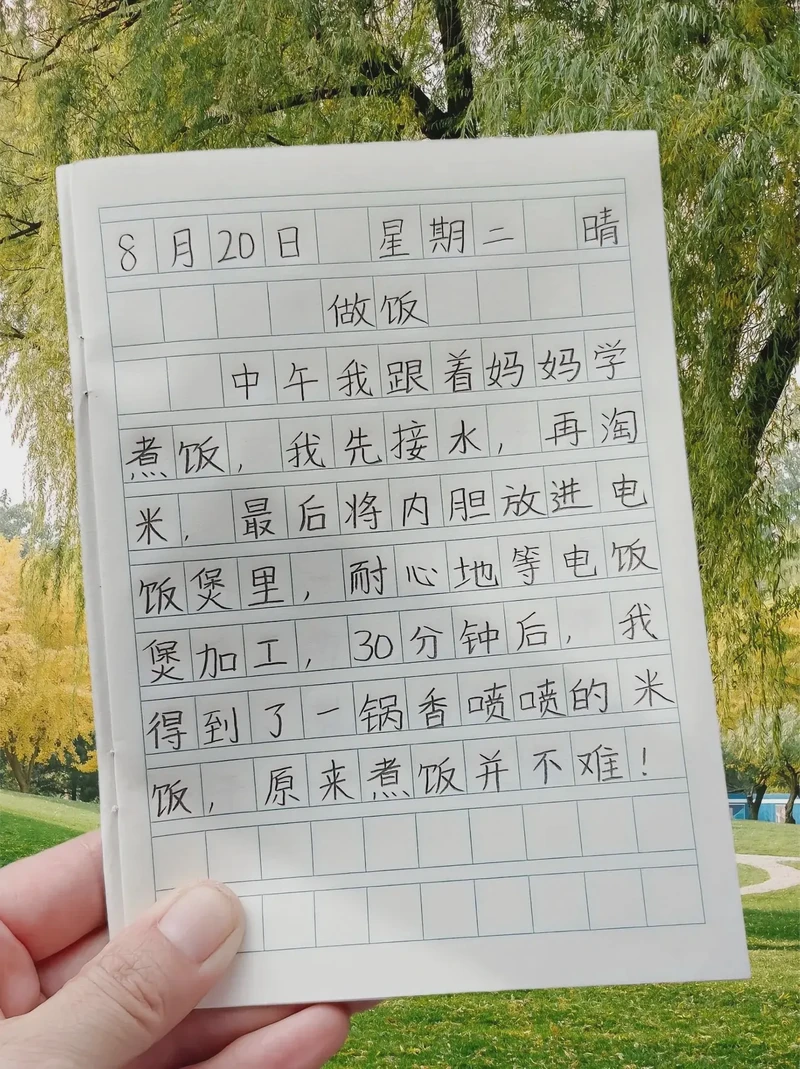 8月20日 星期二 晴
做饭
中午我跟着妈妈学
煮饭，我先接水，再淘
米，最后将内胆放进电
饭煲里，耐心地等电饭
煲加工，30分钟后，我
得到了一锅香喷喷的米
饭，原来煮饭并不难！